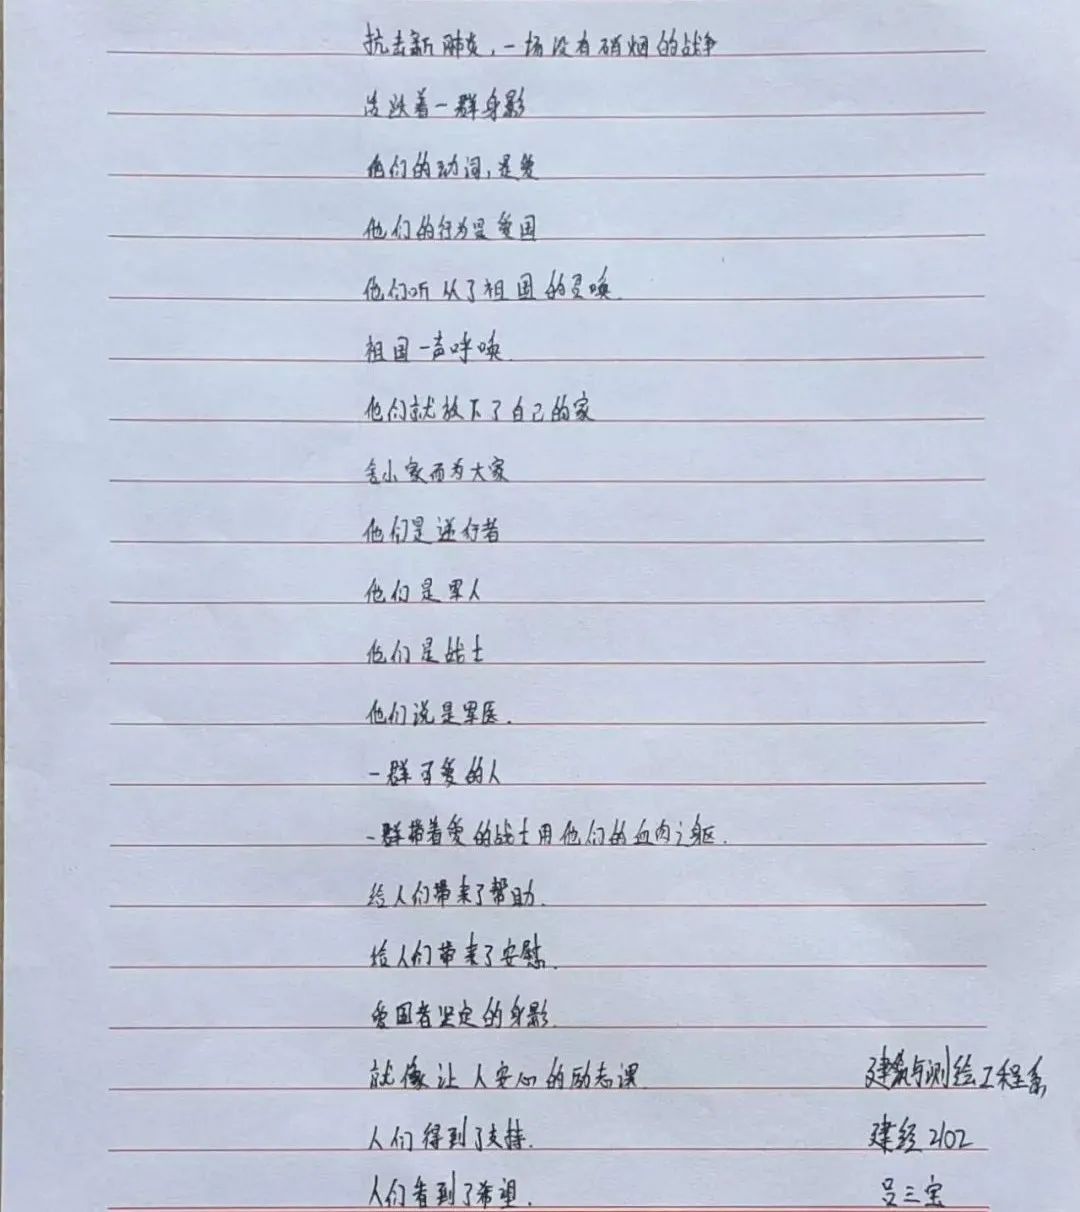 抗击新肺炎，一场没有硝烟的战争
活跃着一群身影
他们的动词，是爱
他们的行为是爱国
他们听从了祖国的召唤.
祖国一声呼唤.
他们就放下了自己的家
舍小家而为大家
他们是逆行者
他们是军人
他们是战士
他们说是军医.
一群可爱的人
一群带着爱的战士用他们的血肉之躯.
给人们带来了帮助.
给人们带来了安慰.
爱国者坚定的身影.
就像让人安心的励志课.
建筑与测绘工程系
人们得到了支持.
建经2102
人们看到了希望.
吕三宝